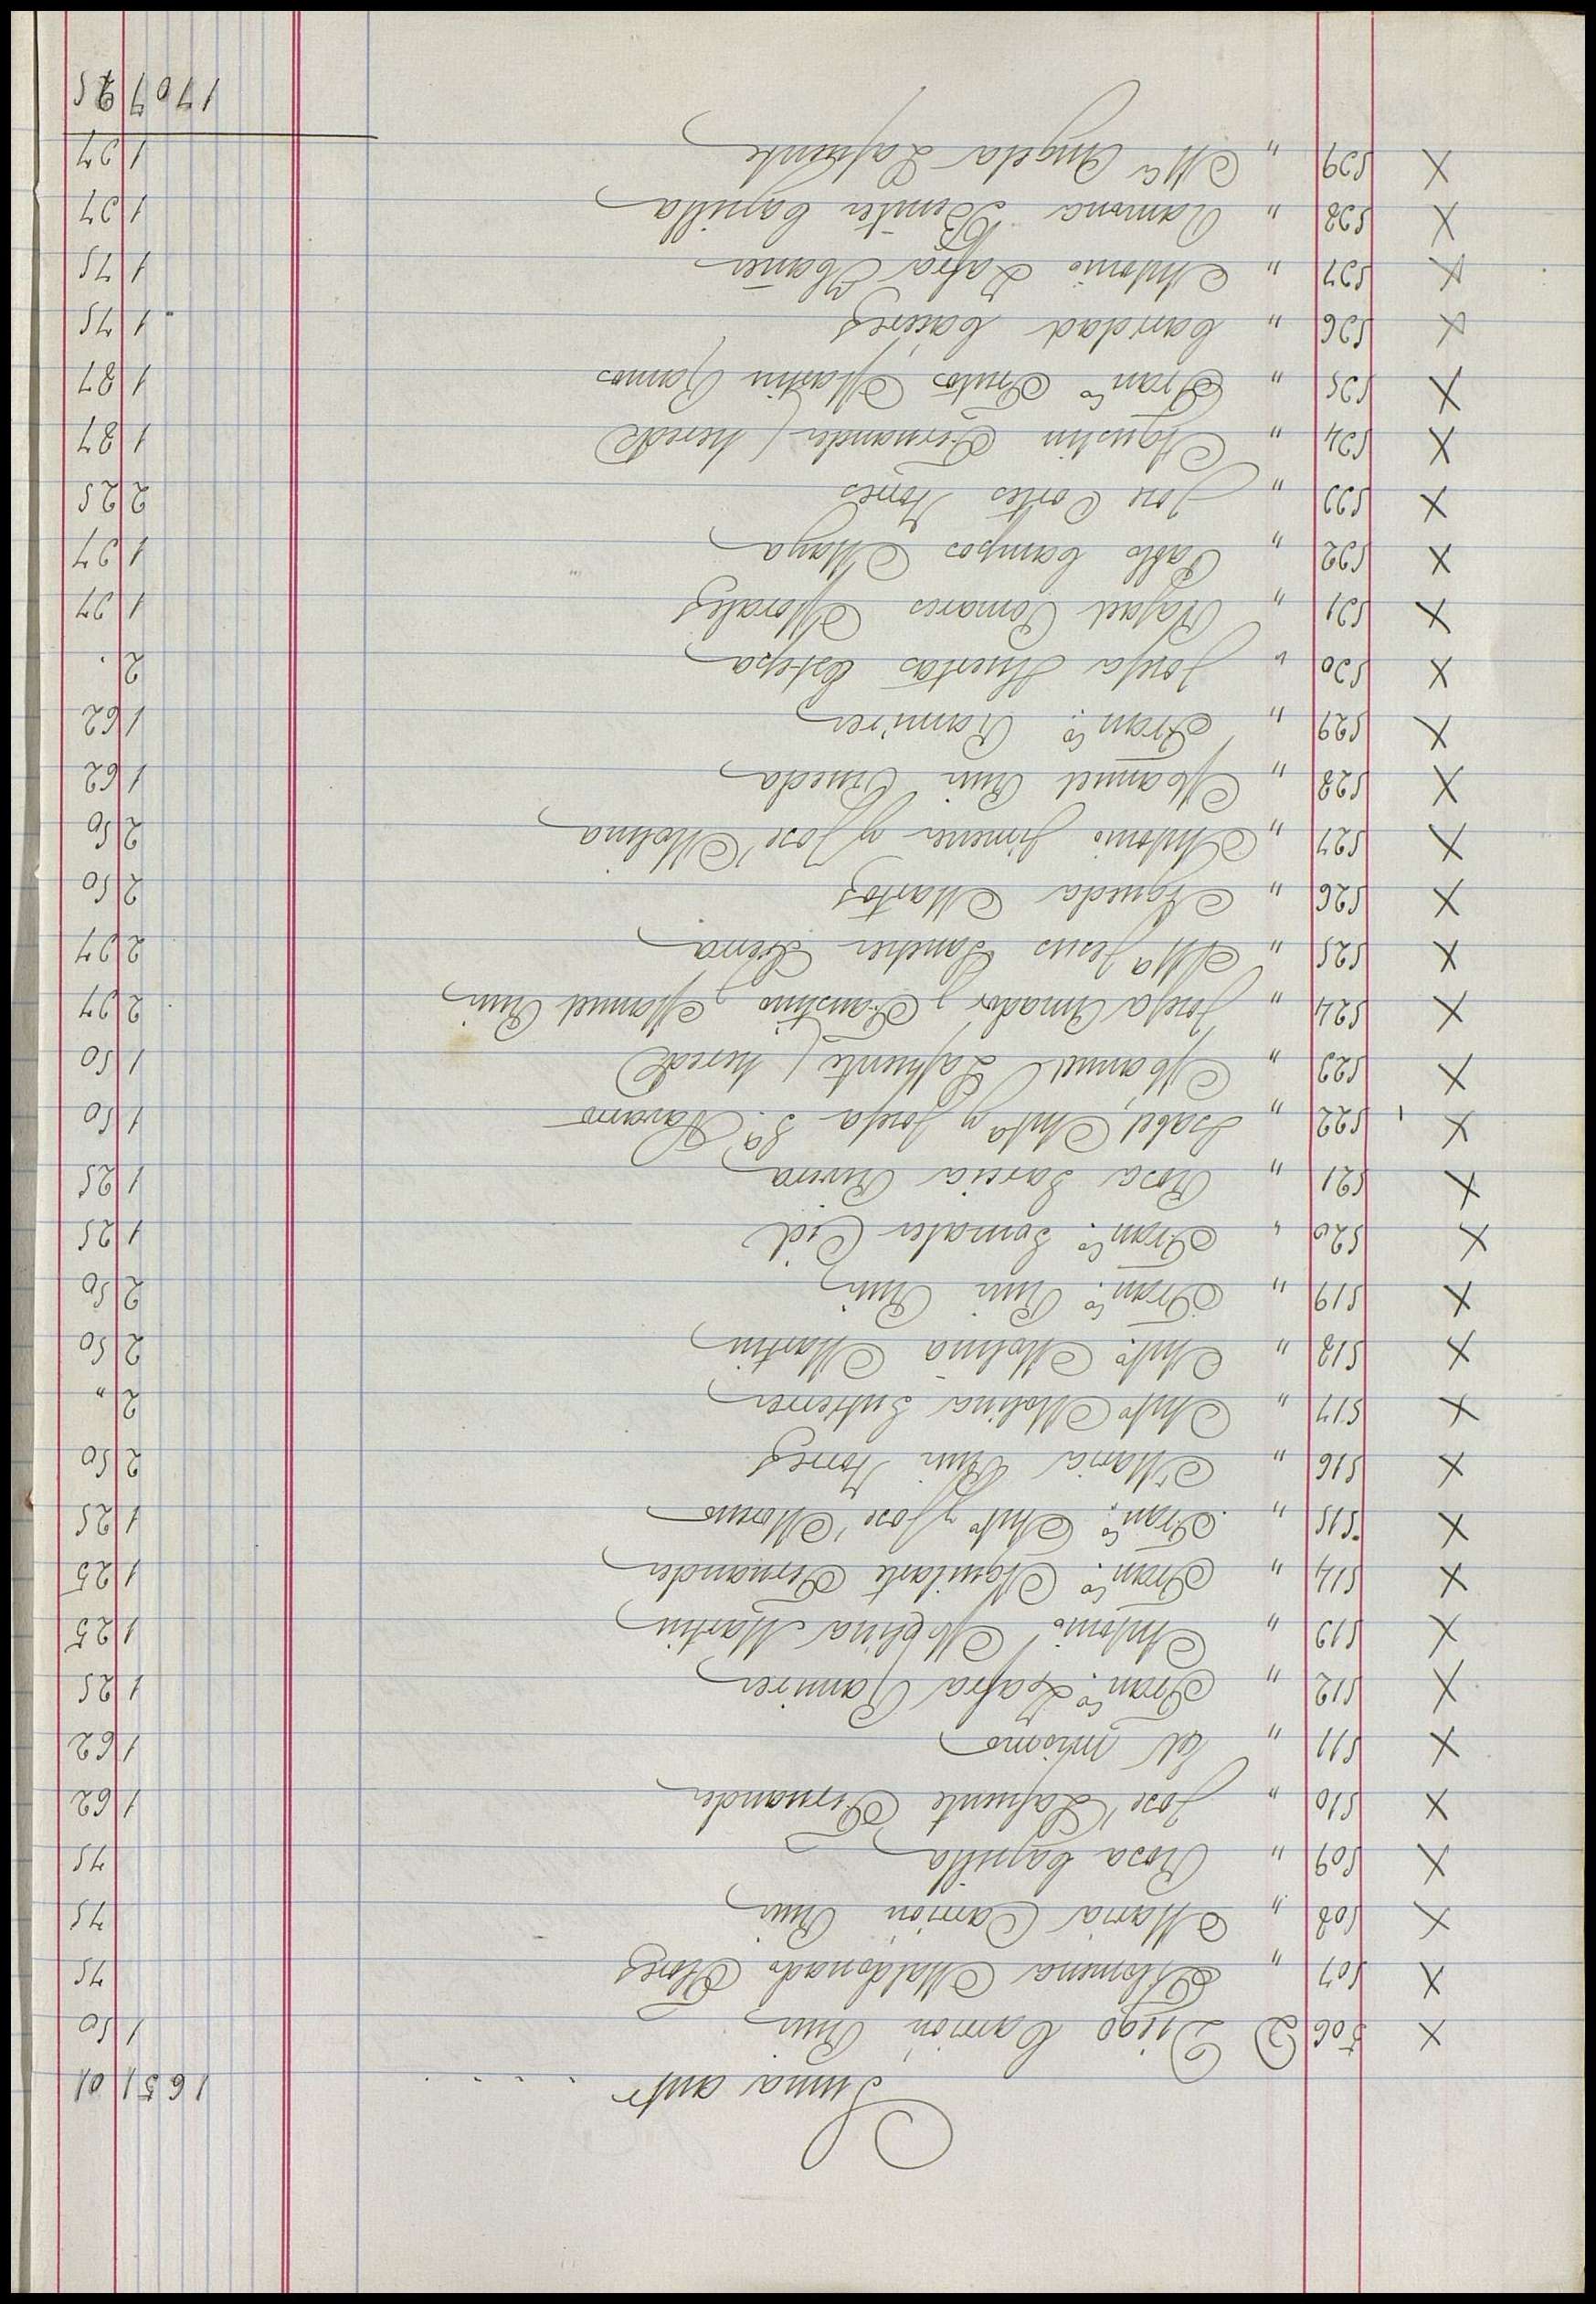 Suma antr . . . . 1651 01
X 506 D Diego Carrión Ruiz 1 50
X 507 " Filomena Maldonado Flores 75
X 508 " Maria Carrión Ruiz 75
X 509 " Rosa Capilla 75
X 510 " José Lafuente Fernandez 1 62
X 511 " El mismo 1 62
X 512 " Franco. Zafra Ramirez 1 25
X 513 " Antonio Molina Martin 1 25
X 514 " Franco. Aguilarte Fernandez 1 25
X 515 " Franco, Anto y José Moreno 1 25
X 516 " Maria Ruiz Torres 2 50
X 517 " Anto Molina Gutierrez 2 "
X 518 " Anto. Molina Martin 2 50
X 519 " Franco. Ruiz Ruiz 2 50
X 520 " Franco. Gonzalez Cid 1 25
X 521 " Rosa Garcia Rivera 1 25
X 522 " Isabel, Anta y Josefa Ga. Navarro 1 50
X 523 " Manuel Lafuente (hered) 1 50
X 524 " Josefa Amador y Faustino y Manuel Ruiz 2 37
X 525 " Ma Jesus Sanchez Sierra 2 37
X 526 " Agueda Martos 2 50
X 527 " Antonio Jimenez y José Molina 2 50
X 528 " Manuel Ruiz Cruceda 1 62
X 529 " Franco. Ramirez 1 62
X 530 " Josefa Huertas Estepa 2 .
X 531 " Rafael Comares Morales 1 37
X 532 " Pablo Campos Maya 1 37
X 533 " José Cortes Torres 2 25
X 534 " Agustin Fernandez (hered) 1 87
X 535 " Franco Frutos Martin Ramos 1 87
X 536 " Caridad Caceres 1 75
X 537 " Antonio Zafra Ibañez 1 75
X 538 " Ramona Benitez Capilla 1 37
X 539 " Ma Angela Lafuente 1 37
1707 95